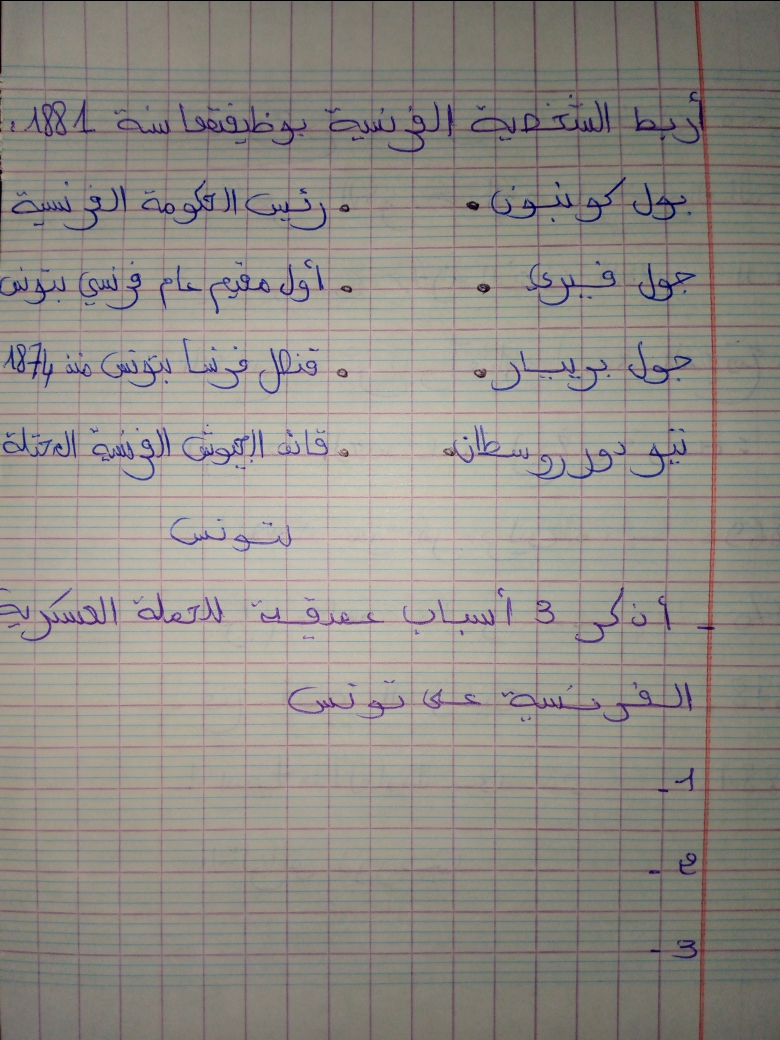 أربط الشخصية الفرنسية بوظيفتها سنة 1881.
بول كونبون • • رئيس الحكومة الفرنسية
جول فيري • • أول مقيم عام فرنسي بتونس
جول بريـار • • قنصل فرنسا بتونس منذ 1874
تيودور روسطان • • قائد الجيوش الفرنسية المحتلة
لتونس
- أذكر 3 أسباب عميقة للحملة العسكرية
الفرنسية على تونس
1-
2-
3-